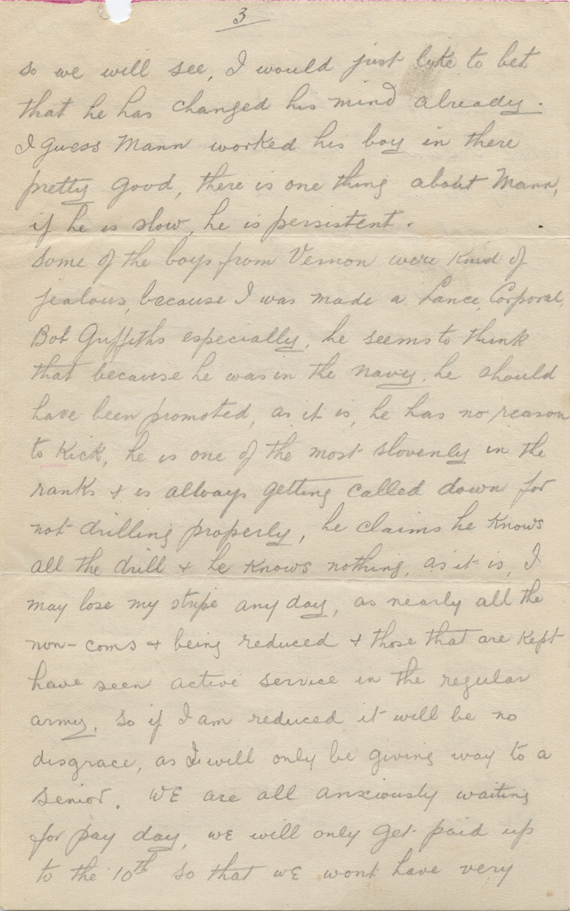 3
so we will see, I would just like to bet
that he has changed his mind already.
I guess Mann worked his boy in there
pretty good, there is one thing about Mann,
if he is slow, he is persistent.
Some of the boys from Vernon were kind of
jealous, because I was made a Lance Corporal,
Bob Griffiths especially, he seems to think
that because he was in the navey, he should
have been promoted, as it is, he has no reason
to kick, he is one of the most slovenly in the
ranks & is allways getting called down for
not drilling properly, he claims he knows
all the drill & he knows nothing, as it is, I
may lose my stripe any day, as nearly all the
non-coms & being reduced & those that are kept
have seen active service in the regular
army, so if I am reduced it will be no
disgrace, as I will only be giving way to a
senior. WE are all anxiously waiting
for pay day, WE will only get paid up
to the 10th so that WE wont have very